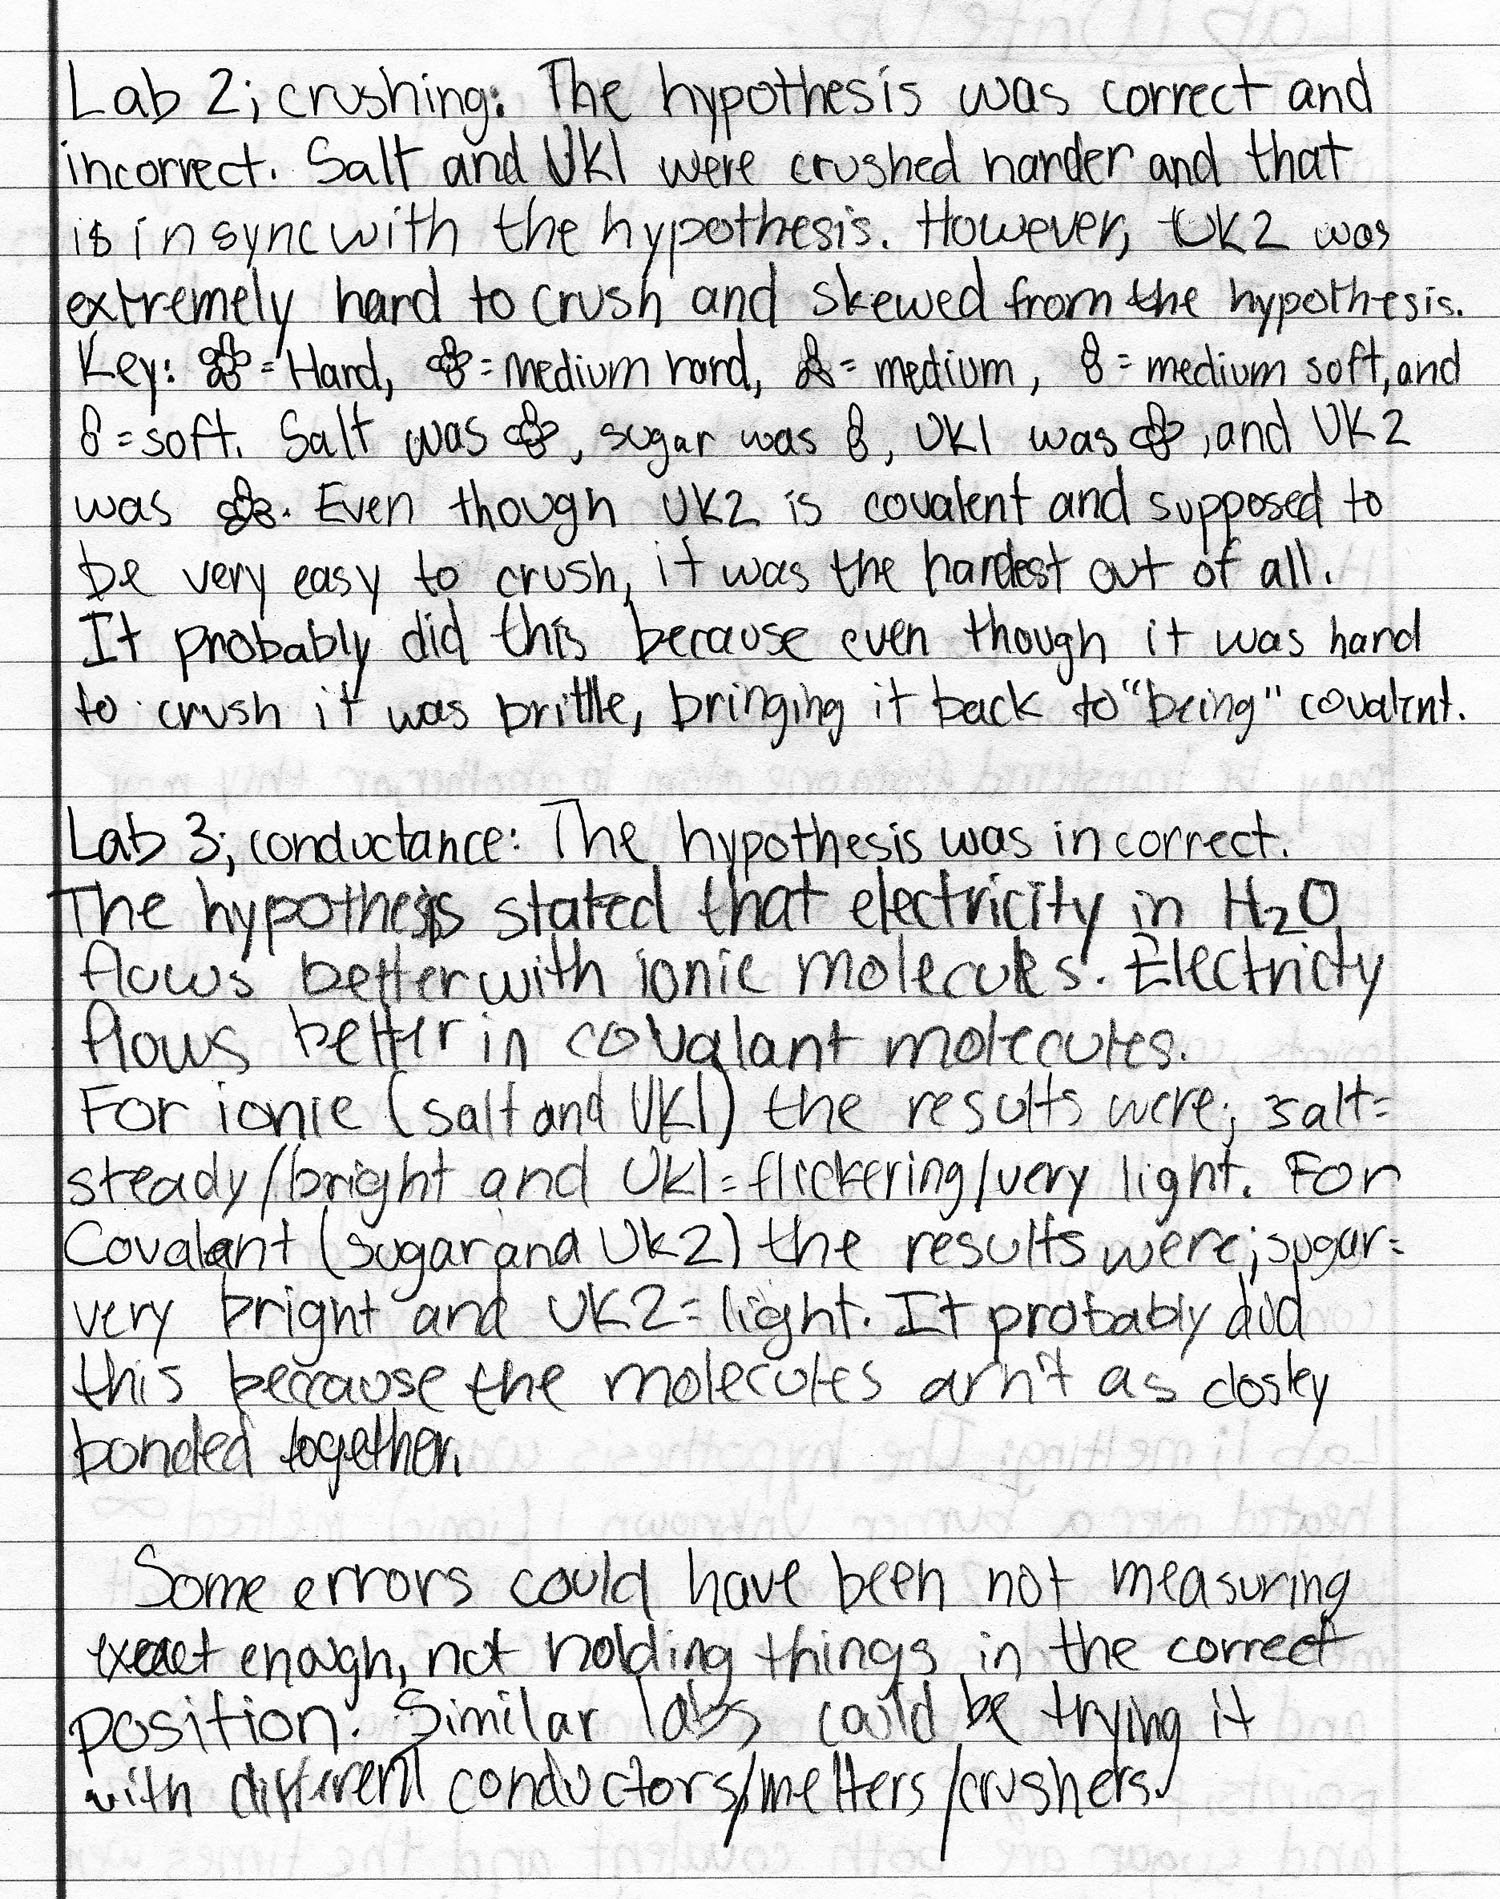 Lab 2; crushing: The hypothesis was correct and
incorrect. Salt and UK1 were crushed harder and that
is in sync with the hypothesis. However, UK2 was
extremely hard to crush and skewed from the hypothesis.
Key: = Hard, = medium hard, = medium, = medium soft, and
= soft. Salt was , sugar was , UK1 was , and UK2
was . Even though UK2 is covalent and supposed to
be very easy to crush, it was the hardest out of all.
It probably did this because even though it was hard
to crush it was brittle, bringing it back to "being" covalent.
Lab 3; conductance: The hypothesis was incorrect.
The hypothesis stated that electricity in H₂O
flows better with ionic molecules. Electricty
flows better in covalant molecules.
For ionic (salt and UK1) the results were; salt=
steady/bright and UK1=flickering/very light. For
Covalant (sugar and UK2) the results were; sugar=
very bright and UK2=light. It probably did
this because the molecules arn't as closley
bonded together.
Some errors could have been not measuring
exact enough, not holding things in the correct
position. Similar labs could be trying it
with different conductors/melters/crushers.